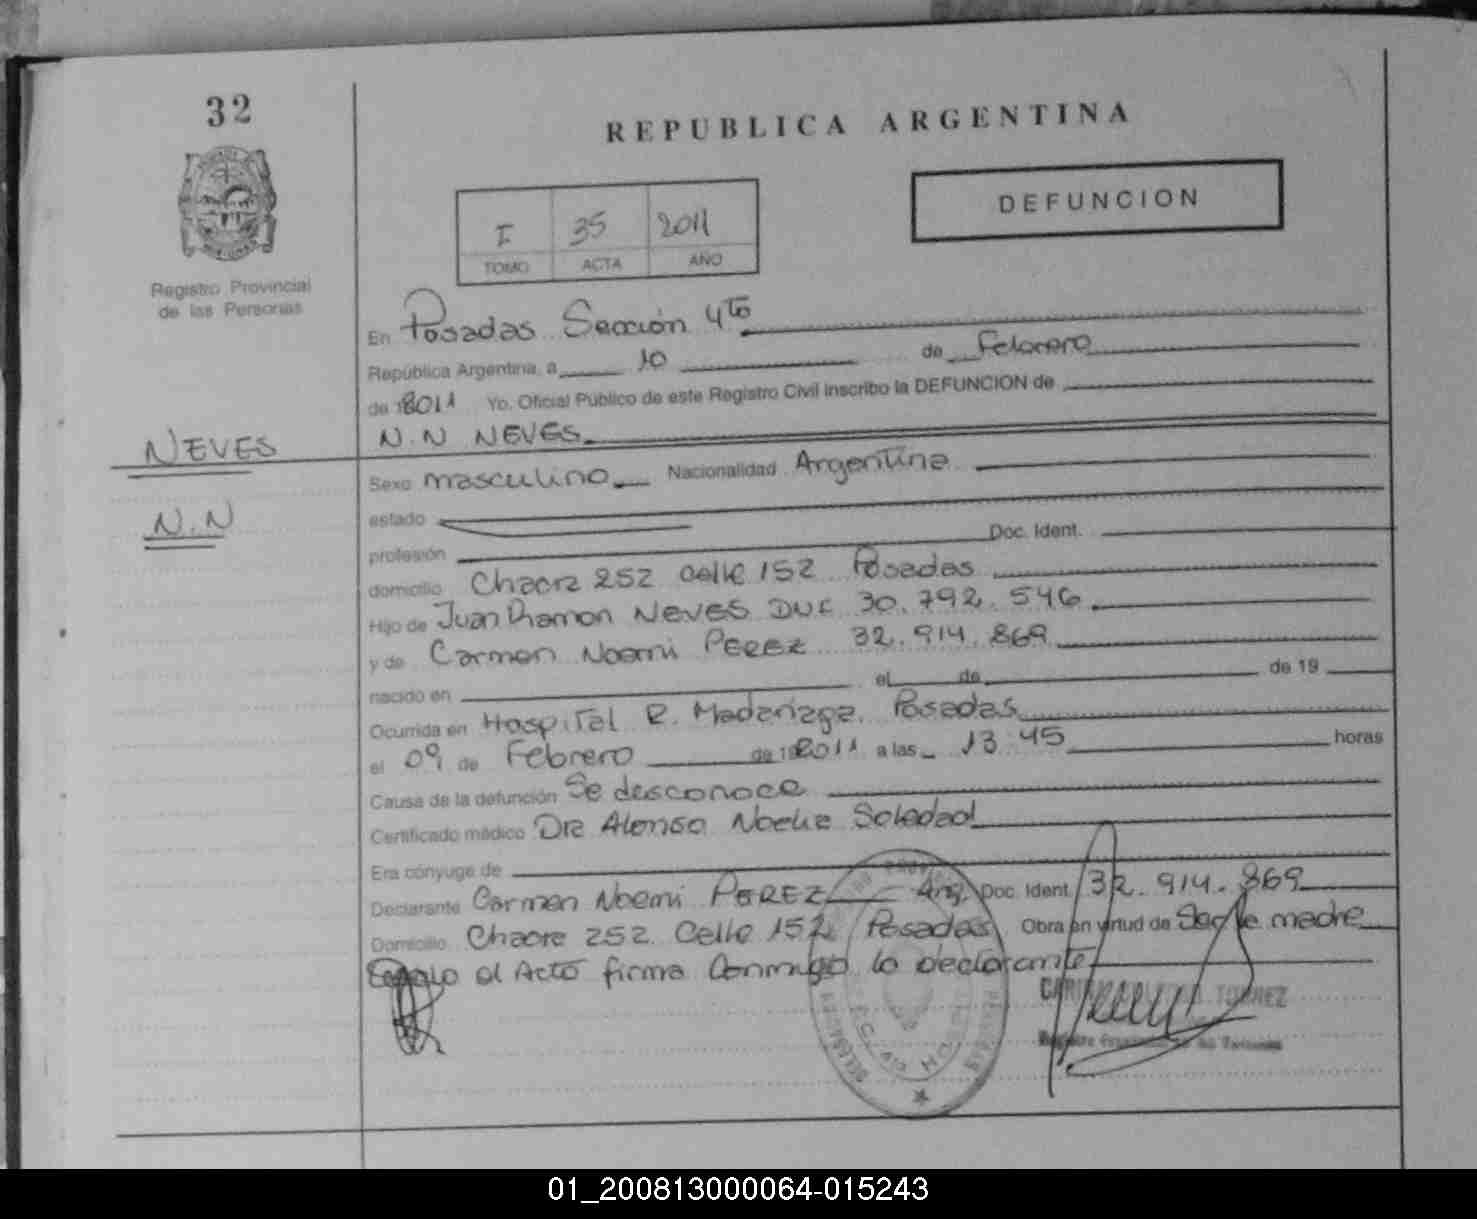 32
REPUBLICA ARGENTINA
DEFUNCION
I 35 2011
TOMO ACTA AÑO
Registro Provincial
de las Personas
En Posadas Sección 4to
República Argentina, a 10 de Febrero
de 2011 Yo, Oficial Público de este Registro Civil inscribo la DEFUNCION de
NEVES
N.N NEVES
Sexo masculino Nacionalidad Argentina
N.N
estado
profesión Doc. Ident.
domicilio Chacra 252 Calle 152 Posadas
Hijo de Juan Ramon NEVES DNI 30.792.546
y de Carmen Noemi PEREZ 32.914.869
nacido en el de de 19
Ocurrida en Hospital R. Madariaga. Posadas
el 09 de Febrero de 2011 a las 13:45 horas
Causa de la defunción Se desconoce
Certificado médico Dra Alonso Noelia Soledad
Era cónyuge de
Declarante Carmen Noemi PEREZ Arg. Doc. Ident. 32.914.869
Domicilio Chacra 252 Calle 152 Posadas Obra en virtud de Ser la madre
el Acto firma Conmigo la declarante
01_200813000064-015243